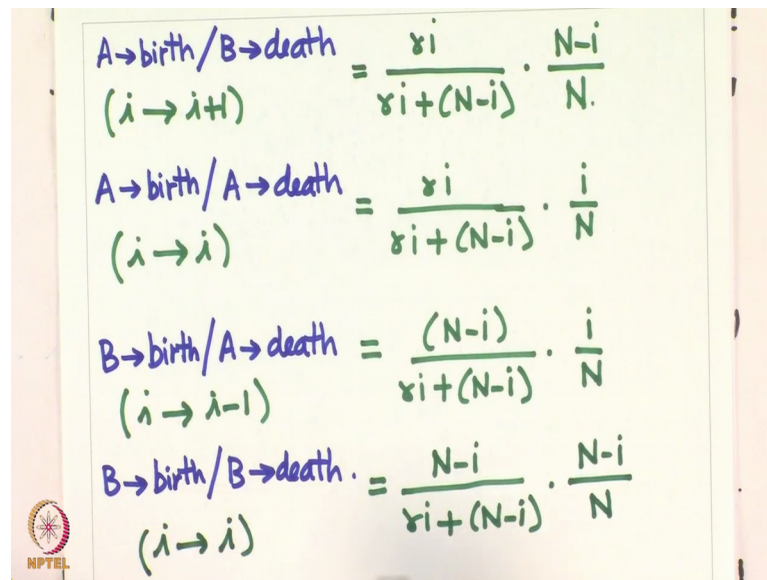 A→birth/B→death = ri / ri+(N-i) · N-i / N.
(i→i+1)
A→birth/A→death = ri / ri+(N-i) · i / N
(i→i)
B→birth/A→death = (N-i) / ri+(N-i) · i / N
(i→i-1)
B→birth/B→death. = N-i / ri+(N-i) · N-i / N
(i→i)
NPTEL